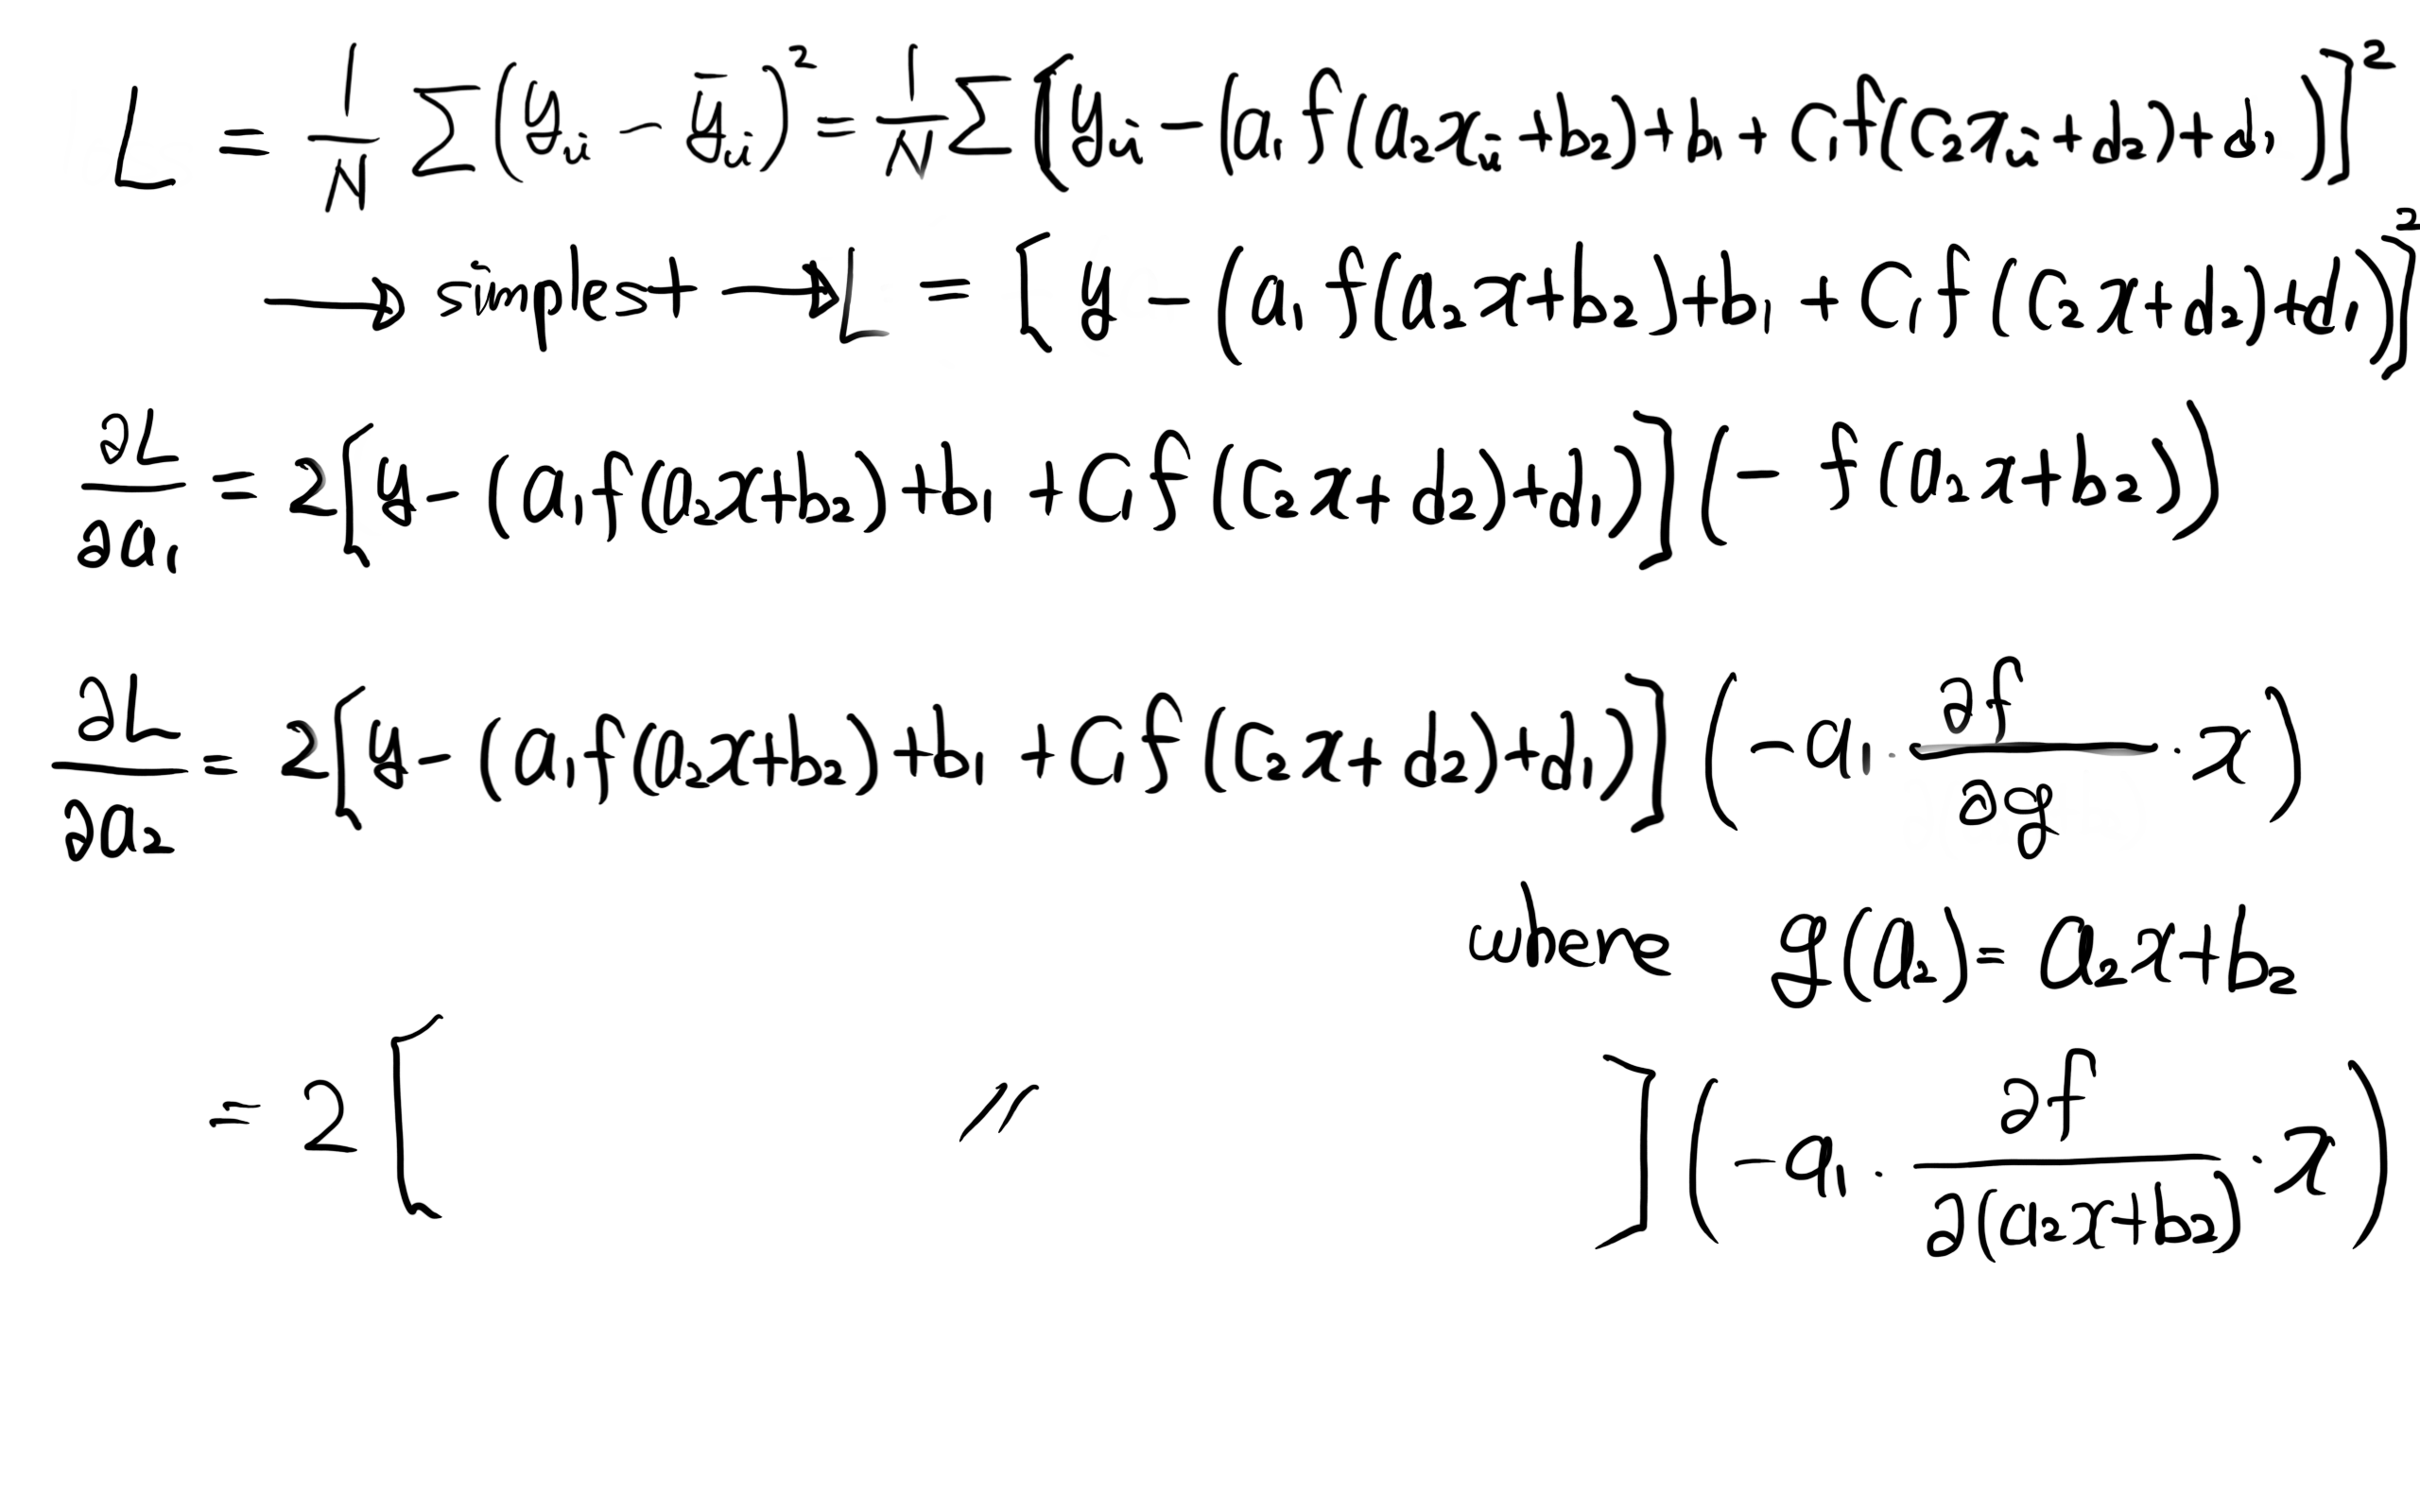 L = 1/N Σ(yᵢ − ȳᵢ)² = 1/N Σ[yᵢ − (a₁f(a₂xᵢ + b₂) + b₁ + c₁f(c₂xᵢ + d₂) + d₁)]²
→ simplest → L = [y − (a₁f(a₂x + b₂) + b₁ + c₁f(c₂x + d₂) + d₁)]²
∂L/∂a₁ = 2[y − (a₁f(a₂x + b₂) + b₁ + c₁f(c₂x + d₂) + d₁)](− f(a₂x + b₂))
∂L/∂a₂ = 2[y − (a₁f(a₂x + b₂) + b₁ + c₁f(c₂x + d₂) + d₁)](−a₁ · ∂f/∂g · x)
where g(a₂) = a₂x + b₂
= 2[ 〃 ](−a₁ · ∂f/∂(a₂x + b₂) · x)